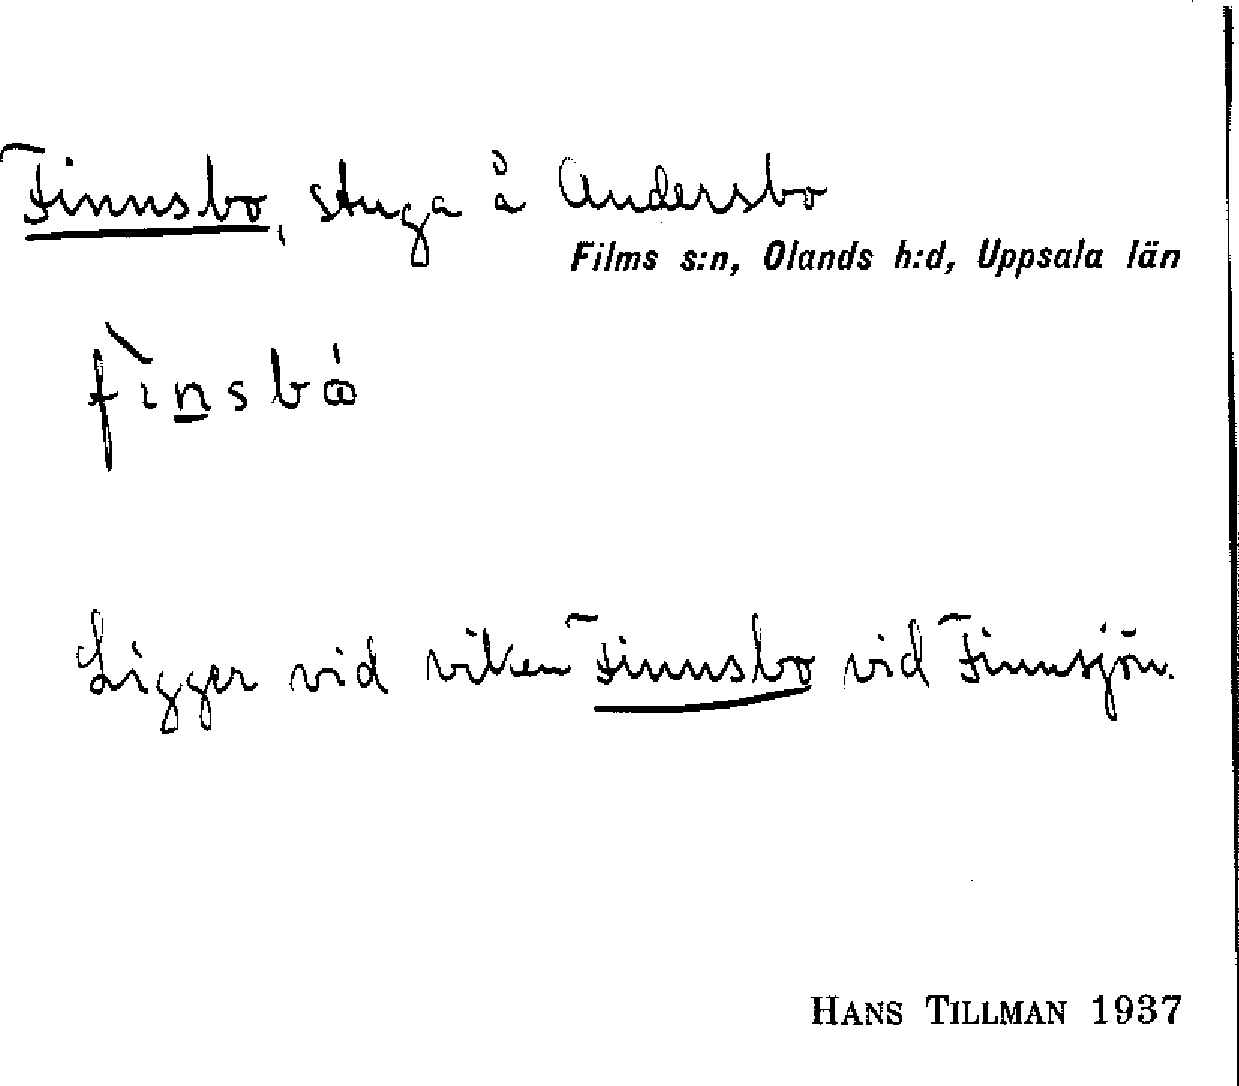 Finnsbo, stuga å Andersbo
Films s:n, Olands h:d, Uppsala län
fìnsbó
Ligger vid viken Finnsbo vid Finnsjön.
HANS TILLMAN 1937